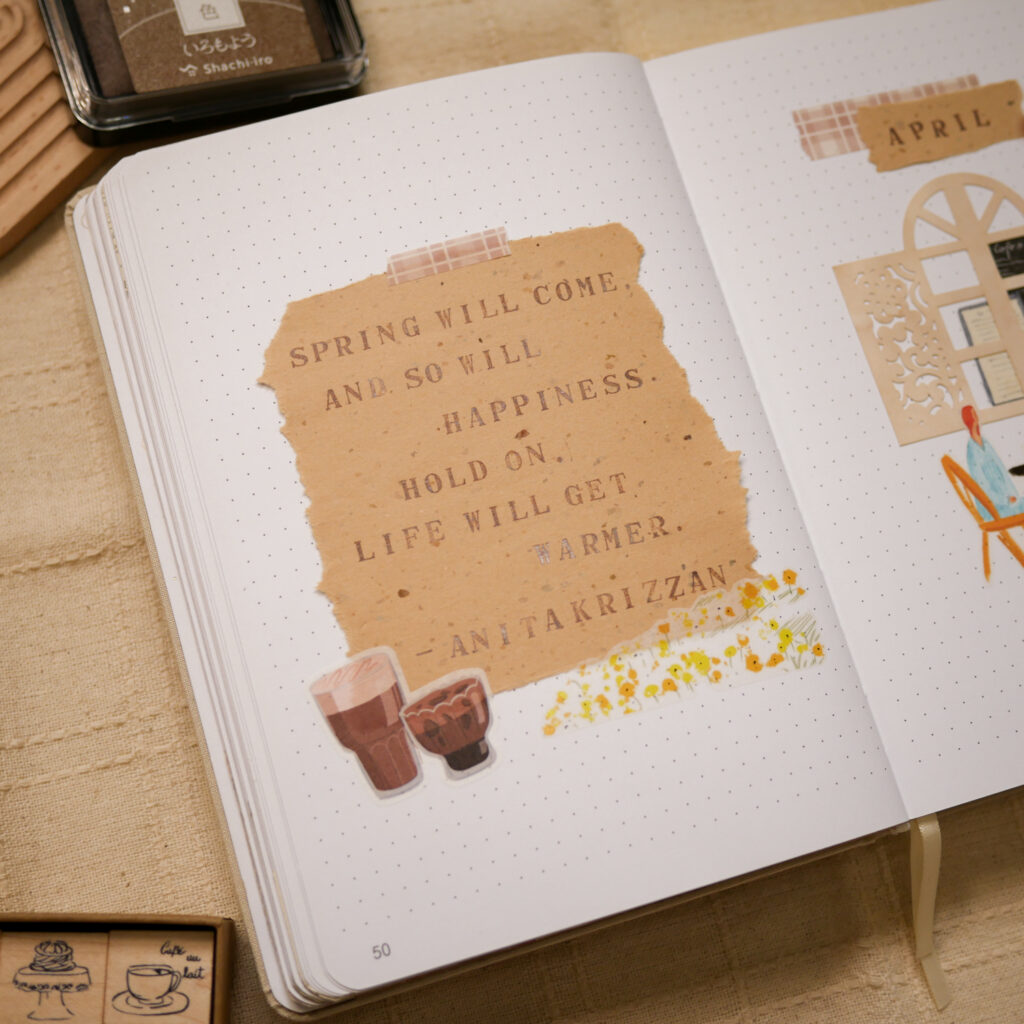 色
いろもよう
Shachi-iro
SPRING WILL COME,
AND SO WILL
HAPPINESS.
HOLD ON.
LIFE WILL GET
WARMER.
- ANITAKRIZZAN
50
APRIL
Café au lait